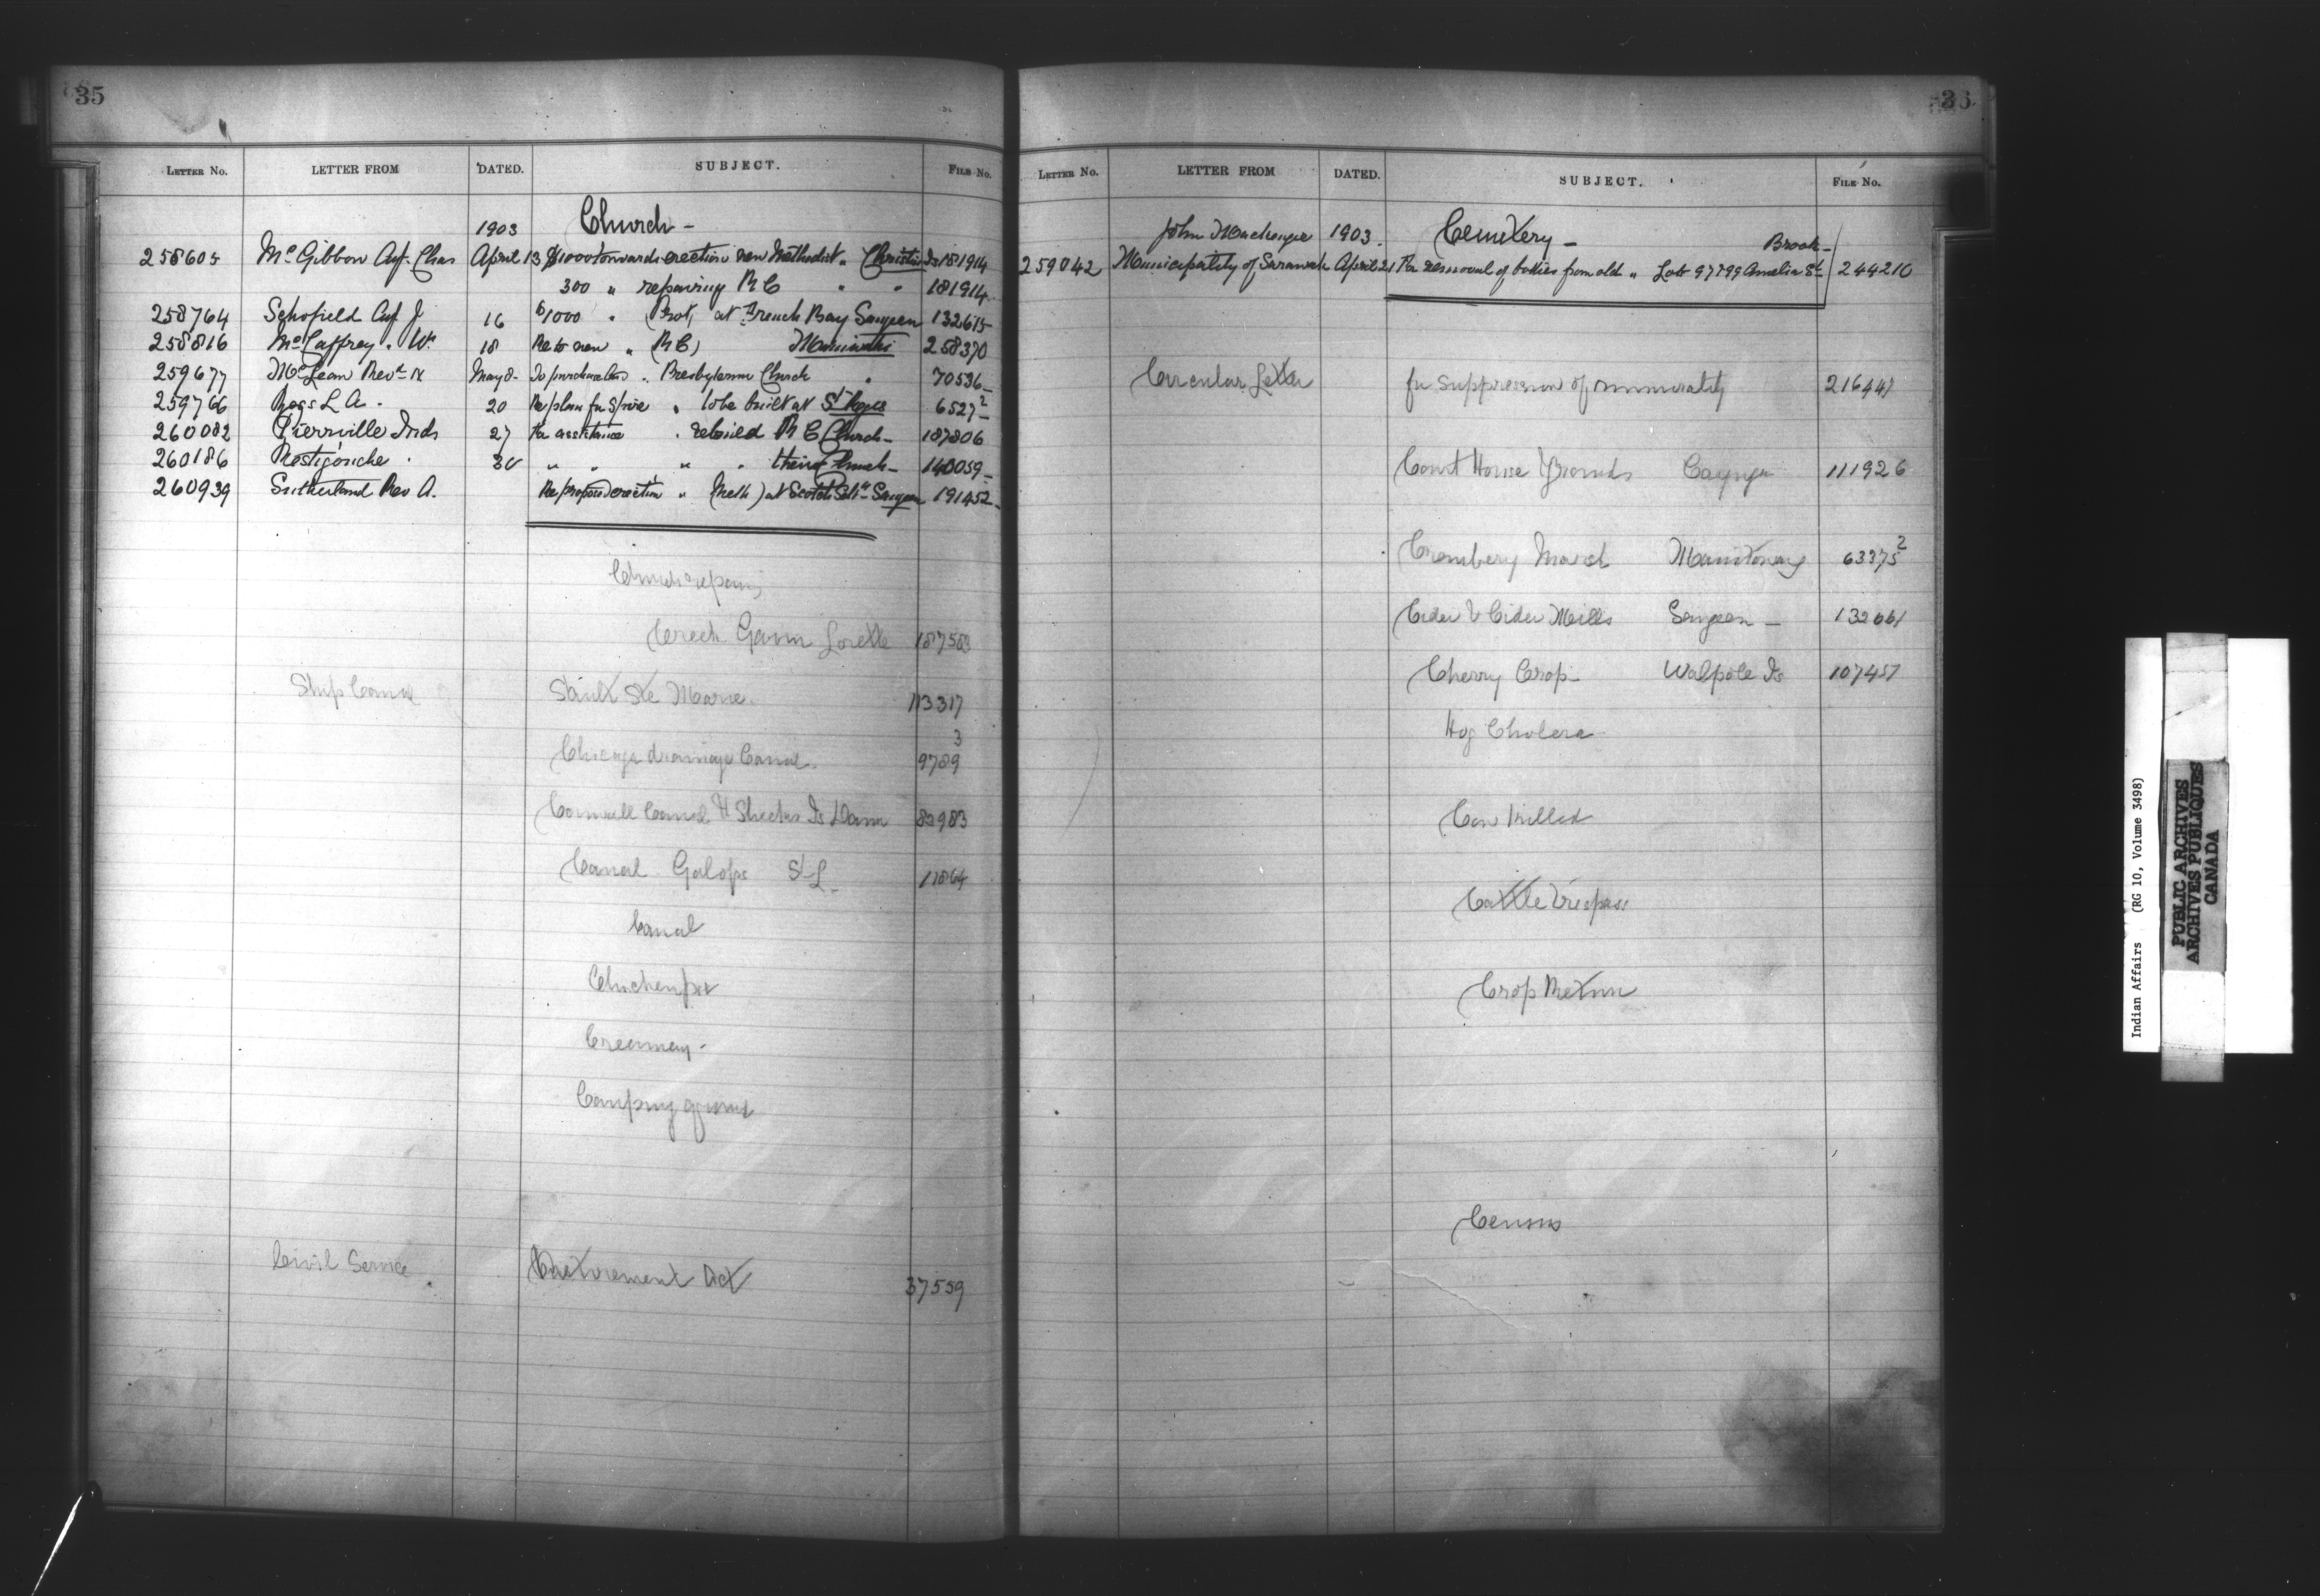 35
LETTER No. LETTER FROM DATED. SUBJECT. FILE No.
1903 Church -
258605 McGibbon Chas April 13 $1000 towards erection new Methodist " Christian Is 181914
300 " repairing R C " " 181914
258764 Schofield J 16 $1000 " Prot, at French Bay Saugeen 132615
258816 McCaffrey. W. 18 Re to new " (R C) Maniwaki 258370
259677 McLean Revd May 8 - To purchase " Presbyterian Church " 70536
259766 L A. 20 Re plan for Spire " to be built at St Regis 6527 2
260082 Pierrville Inds 27 For assistance " rebuild R C Church - 187806
260186 Restigouche " 30 " " " " their Church - 140059
260939 Sutherland Rev A. Re proposed erection " (Meth) at Scotch Settt Saugeen 191452
Church repairs
Creek Lorette 187583
Ship Canal Sault Ste Marie. 113317
Chicago drainage Canal. 9789 3
Cornwall Canal & Sheeks Is Dam 82983
Canal Galops St L. 11864
Canal
Chickenpox
Creamery -
Camping ground
Civil Service Act 37559
36
LETTER No. LETTER FROM DATED. SUBJECT. FILE No.
John 1903. Cemetery - Brook-
259042 Municipality of Sarawak April 21 For removal of bodies from old " Lots 97 & 99 Amelia St 244210
Circular Letter for suppression of immorality 216447
Court House Grounds Cayuga 111926
Cranbery Marsh Manitowaning 63375 2
Cider & Cider Mills Saugeen - 132061
Cherry Crop - Walpole Is 107457
Hog Cholera
Cow killed
Cattle Trespass
Crop Return
Census
Indian Affairs (RG 10, Volume 3498)
PUBLIC ARCHIVES
ARCHIVES PUBLIQUES
CANADA